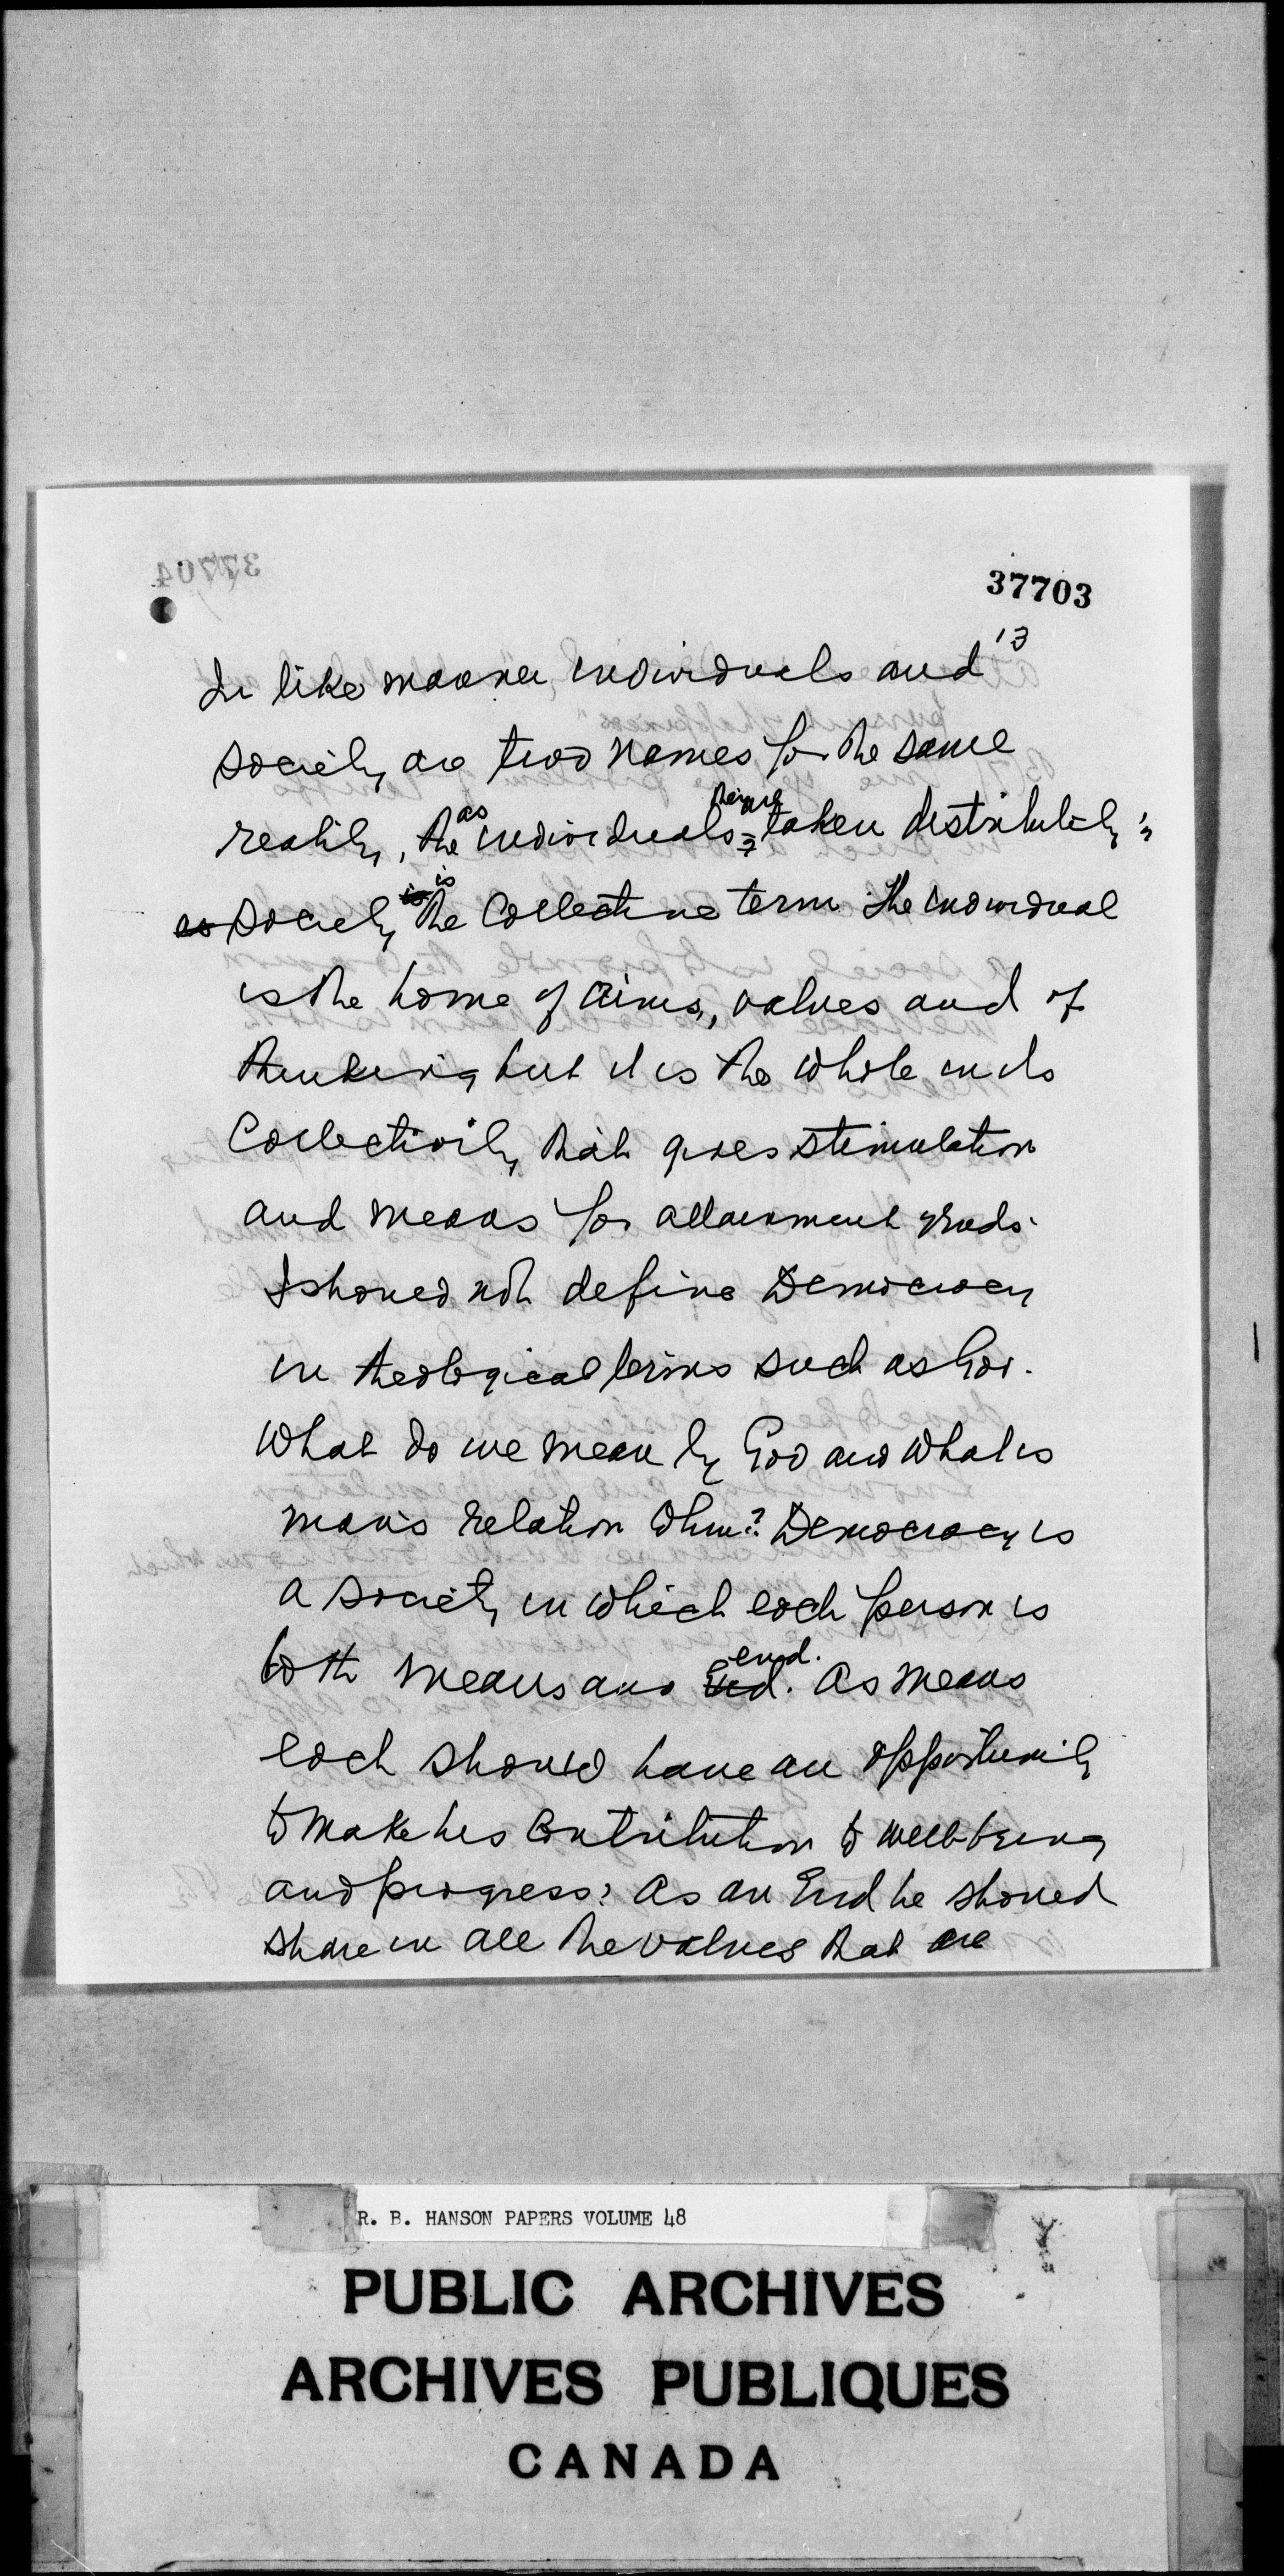 37704
37703
13
In like manner individuals and
society are two names for the same
reality, the as individuals they are taken distributively;
as society is is the Collective term The individual
is the home of aims, values and of
thinking but it is the whole in its
Collectivity that gives stimulation
and means for attainment
I should not define Democracy
in theological terms such as God.
What do we mean by God and what is
man's relation to him? Democracy is
a society in which each person is
both means and End. end. As means
each should have an opportunity
to make his Contribution to well-being
and progress: As an End he should
share in all the values that are
R. B. HANSON PAPERS VOLUME 48
PUBLIC ARCHIVES
ARCHIVES PUBLIQUES
CANADA